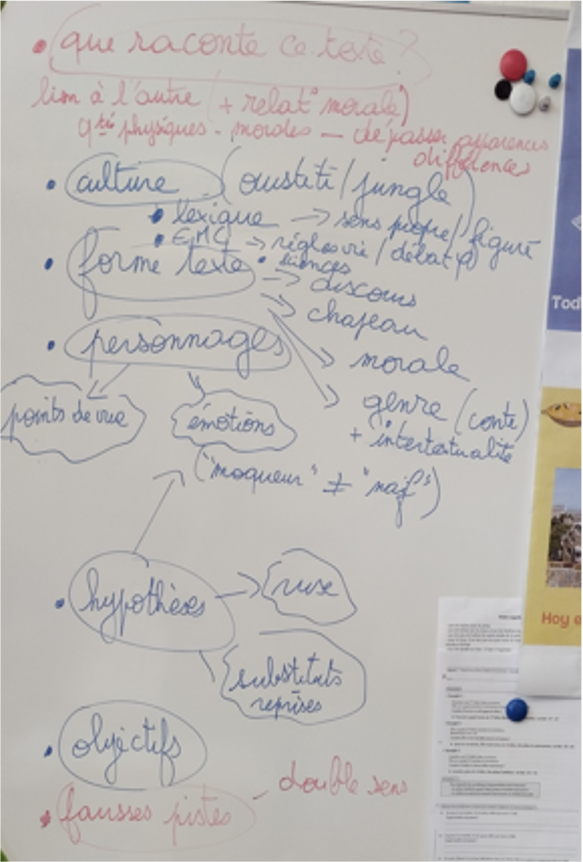 • que raconte ce texte ?
lien à l'autre (+ relat° morale)
qtés physiques - morales - dépasser apparences
différences
• culture (ouistiti / jungle)
• lexique → sens propre / figuré
• EMC → règles vie / débat φ
• sciences
• forme texte → discours
→ chapeau
→ morale
→ genre (conte)
+ intertextualité
• personnages
points de vue
émotions
("moqueur" ≠ "naïf")
• hypothèses → ruse
substituts
reprises
• objectifs
• fausses pistes - double sens
Tod
Hoy e